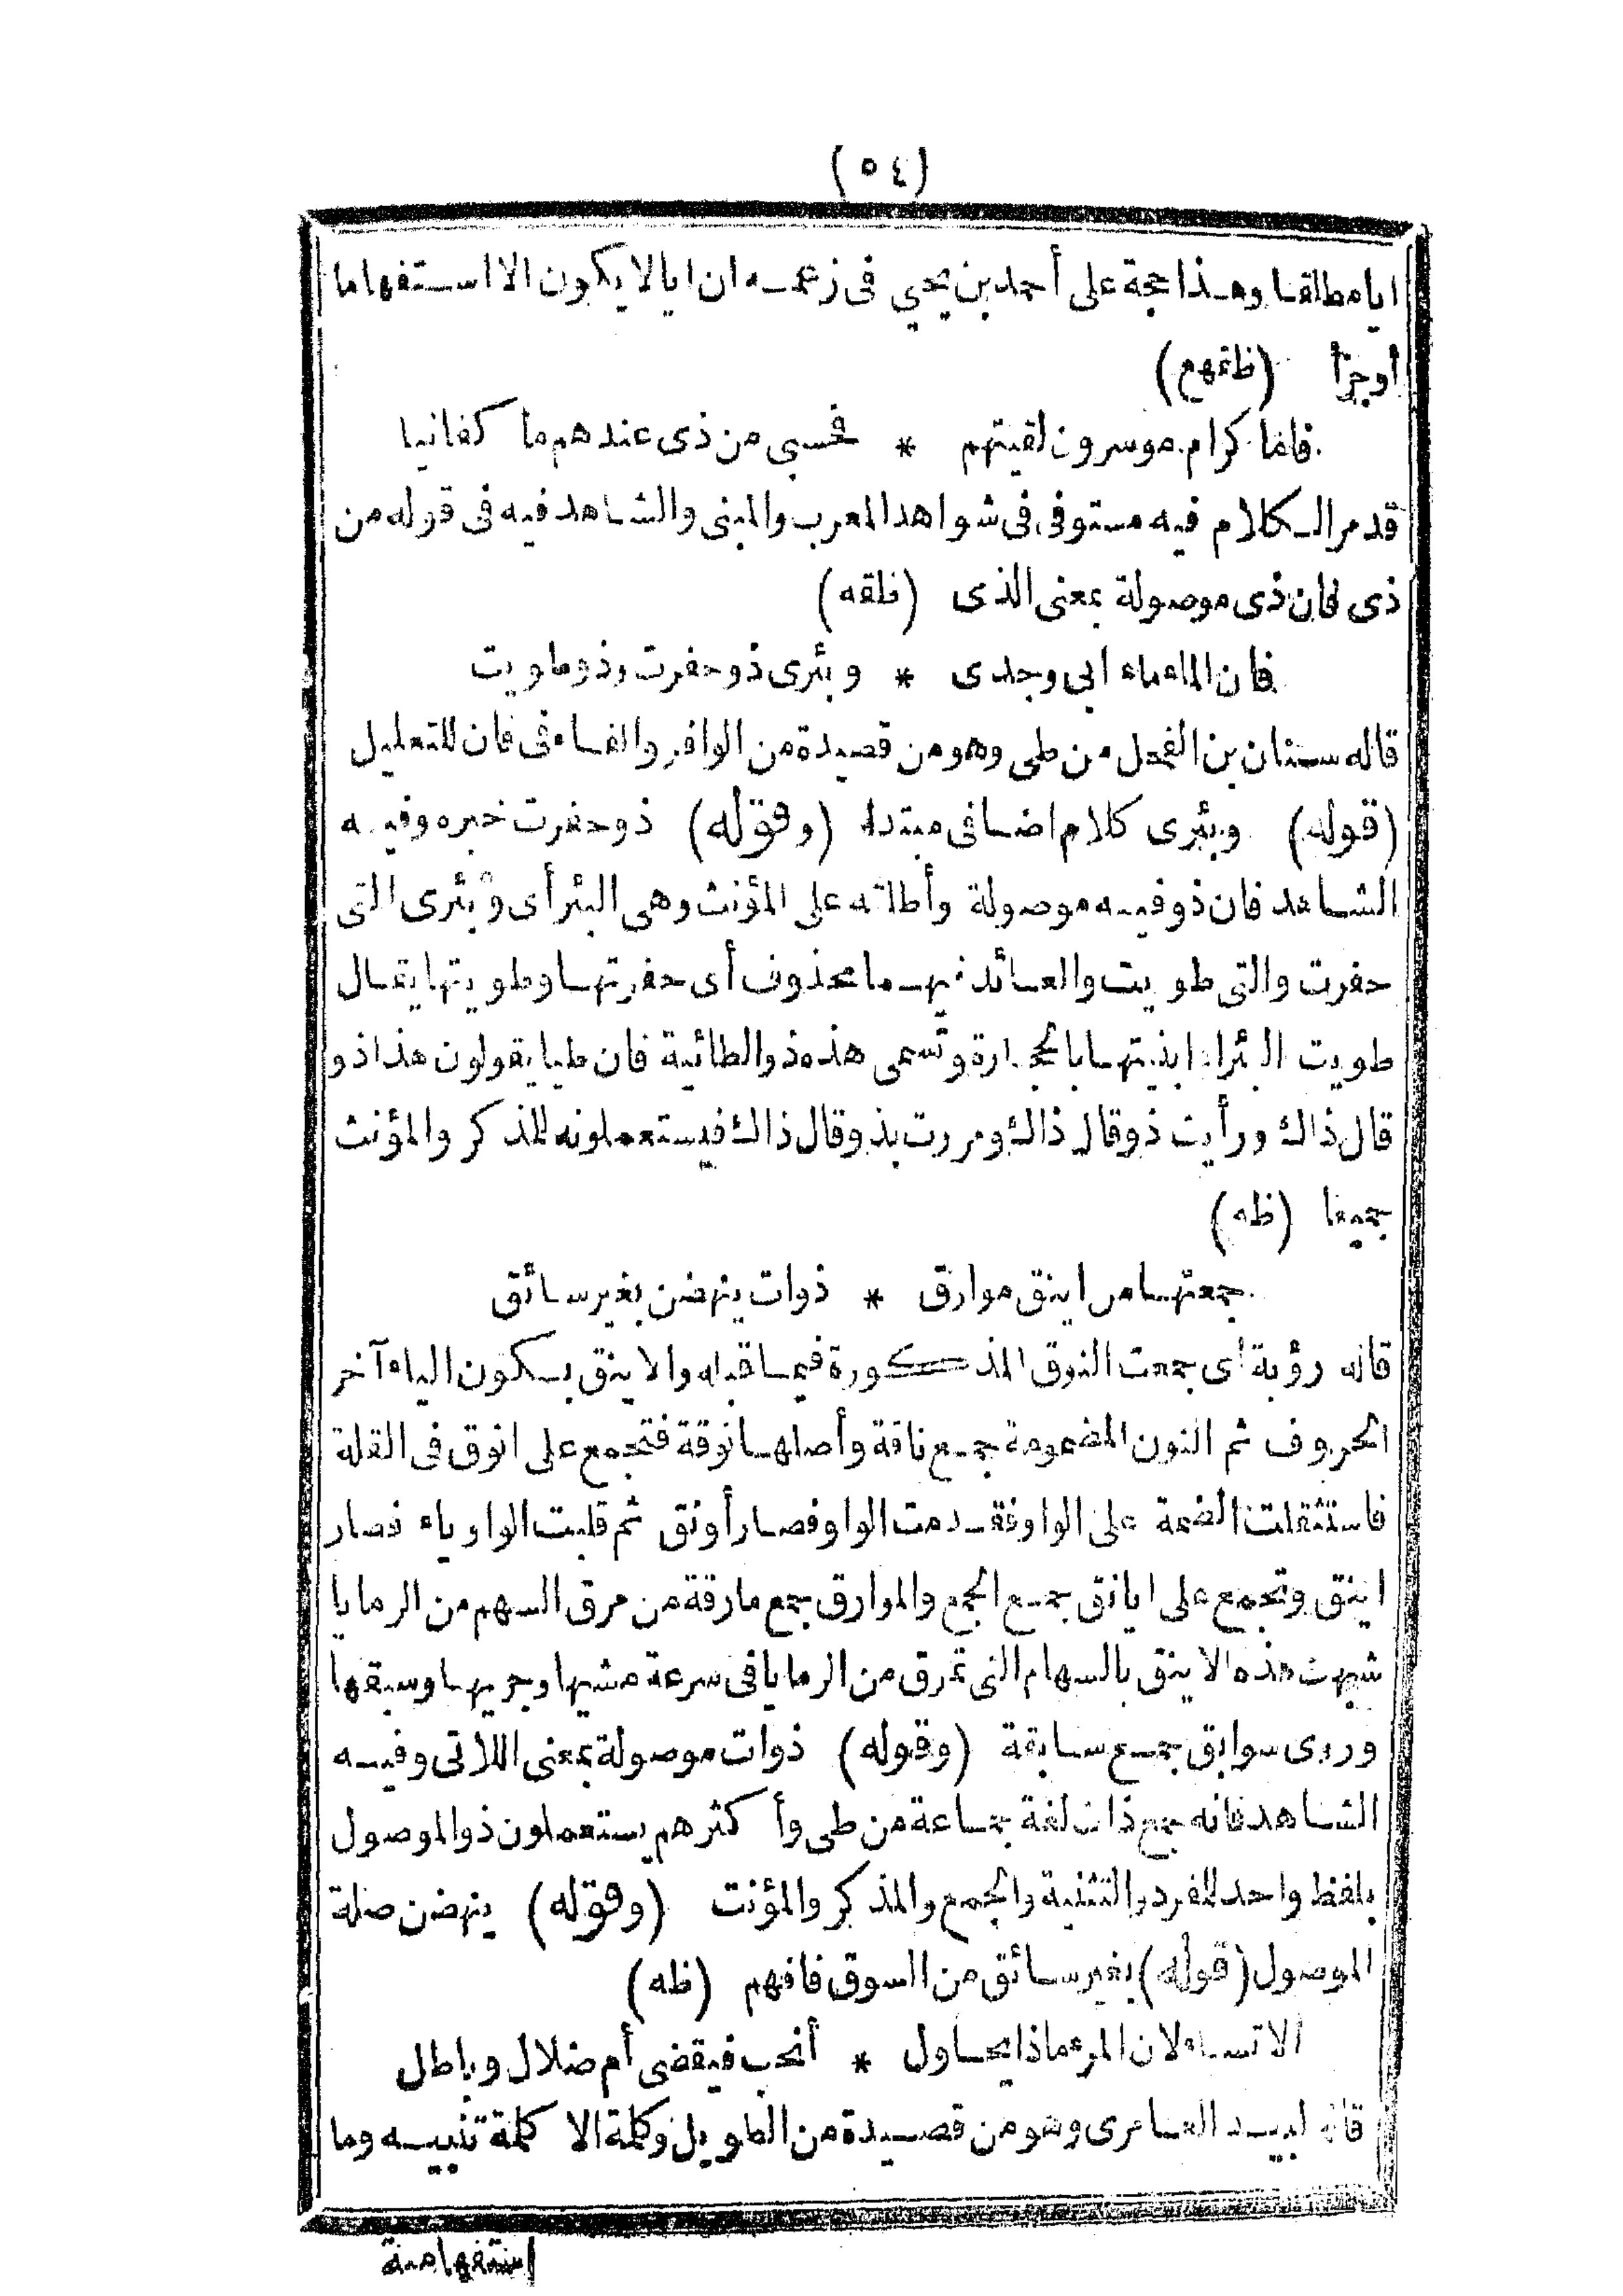 (٥٤)
ايا مطلقا وهذا حجة على أحمد بن يحيى فى زعمه ان ايا لا يكون الا استفهاما
أوجزأ (ظقهع)
فاما كرام موسرون لقيتهم * فحسبى من ذى عندهم ما كفانيا
قد مر الكلام فيه مستوفى فى شواهد المعرب والمبنى والشاهد فيه فى قوله من
ذى فان ذى موصولة بمعنى الذى (ظقه)
فان الماء ماء ابى وجدى * وبئرى ذو حفرت وذو طويت
قاله سنان بن الفحل من طى وهو من قصيدة من الوافر والفاء فى فان للتعليل
(قوله) وبئرى كلام اضافى مبتدا (وقوله) ذو حفرت خبره وفيه
الشاهد فان ذو فيه موصولة وأطلقه على المؤنث وهى البئر أى وبئرى التى
حفرت والتى طويت والعائد فيهما محذوف أى حفرتها وطويتها يقال
طويت البئر اذا بنيتها بالحجارة وتسمى هذه ذو الطائية فان طيا يقولون هذا ذو
قال ذاك ورأيت ذو قال ذاك ومررت بذو قال ذاك فيستعملونه للمذكر والمؤنث
جميعا (ظه)
جمعتها من اينق موارق * ذوات ينهضن بغير سائق
قاله رؤبة اى جمعت النوق المذكورة فيما قبله والاينق بسكون الياء آخر
الحروف ثم النون المضمومة جمع ناقة وأصلها نوقة فتجمع على انوق فى القلة
فاستثقلت الضمة على الواو فقدمت الواو فصار أونق ثم قلبت الواو ياء فصار
اينق وتجمع على ايانق جمع الجمع والموارق جمع مارقة من مرق السهم من الرمايا
شبهت هذه الاينق بالسهام التى تمرق من الرمايا فى سرعة مشيها وجريها وسبقها
وروى سوابق جمع سابقة (وقوله) ذوات موصولة بمعنى اللاتى وفيه
الشاهد فانه جمع ذات لغة جماعة من طى وأكثرهم يستعملون ذو الموصول
بلفظ واحد للمفرد والتثنية والجمع والمذكر والمؤنت (وقوله) ينهضن صلة
الموصول (قوله) بغير سائق من السوق فافهم (ظه)
الا تساءلان المرء ماذا يحاول * أنحب فيقضى أم ضلال وباطل
قاله لبيد العامرى وهو من قصيدة من الطويل وكلمة الا كلمة تنبيه وما
استفهامية